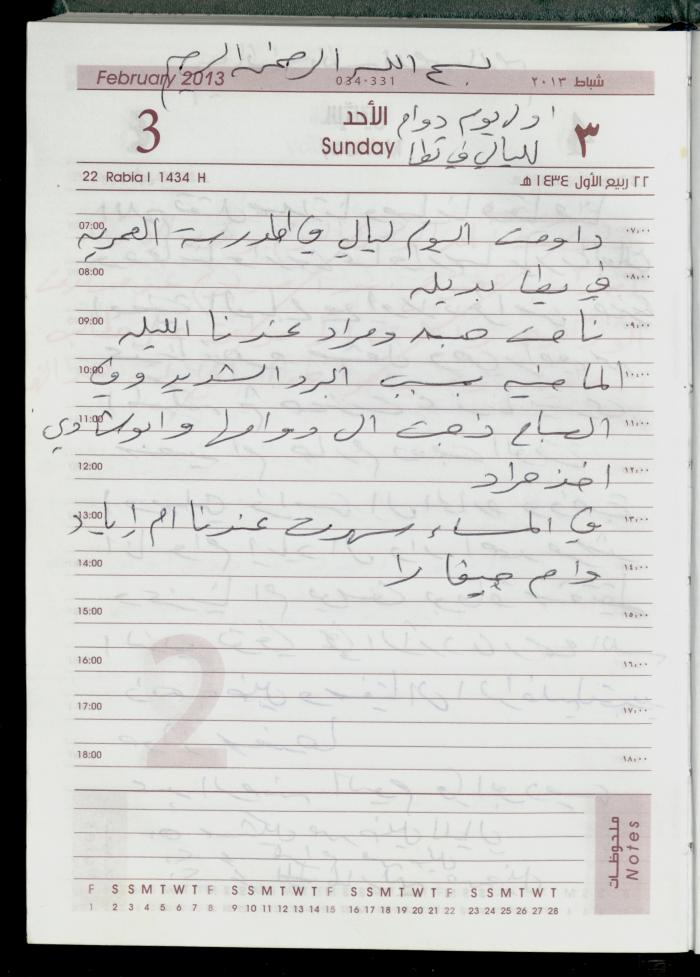 بسم الله الرحمن الرحيم
February 2013 034-331 شباط ٢٠١٣
3 الأحد اول يوم دوام ٣
Sunday لليالي في يطا
22 Rabia I 1434 H ٢٢ ربيع الأول ١٤٣٤ هـ
07:00 داومت اليوم ليالي في المدرسة العمرية ٠٧:٠٠
08:00 في يطا بديله ٠٨:٠٠
09:00 نامت هبه ومراد عندنا الليله ٠٩:٠٠
10:00 الماضيه بسبب البرد الشديد وفي ١٠:٠٠
11:00 الصباح ذهبت الى دوامها وابو شادي ١١:٠٠
12:00 اخذ مراد ١٢:٠٠
13:00 في المساء سهرت عندنا ام اياد ١٣:٠٠
14:00 وام جيفارا ١٤:٠٠
15:00 ١٥:٠٠
16:00 ١٦:٠٠
17:00 ١٧:٠٠
18:00 ١٨:٠٠
2
ملحوظات Notes
F S S M T W T F S S M T W T F S S M T W T F S S M T W T
1 2 3 4 5 6 7 8 9 10 11 12 13 14 15 16 17 18 19 20 21 22 23 24 25 26 27 28